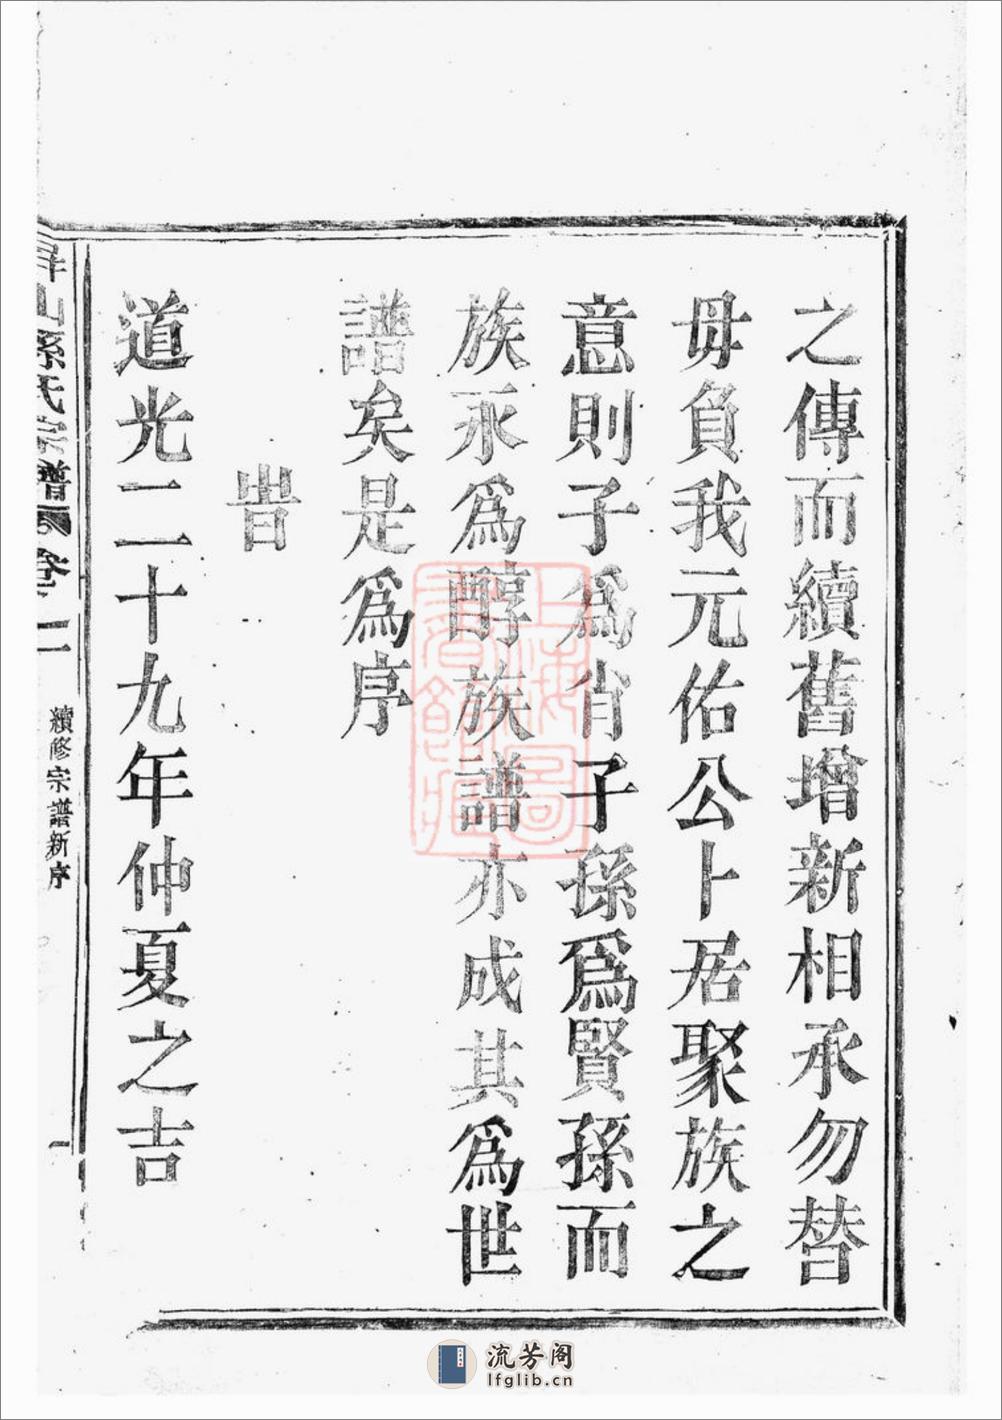 之傳而續舊增新相承勿替
毋負我元佑公卜居聚族之
意則子爲肖子孫爲賢孫而
族永爲醇族譜亦成其爲世
譜矣是爲序
旹
道光二十九年仲夏之吉
屏山孫氏宗譜 卷一 續修宗譜新序
上海圖書館藏
流芳阁
lfglib.cn